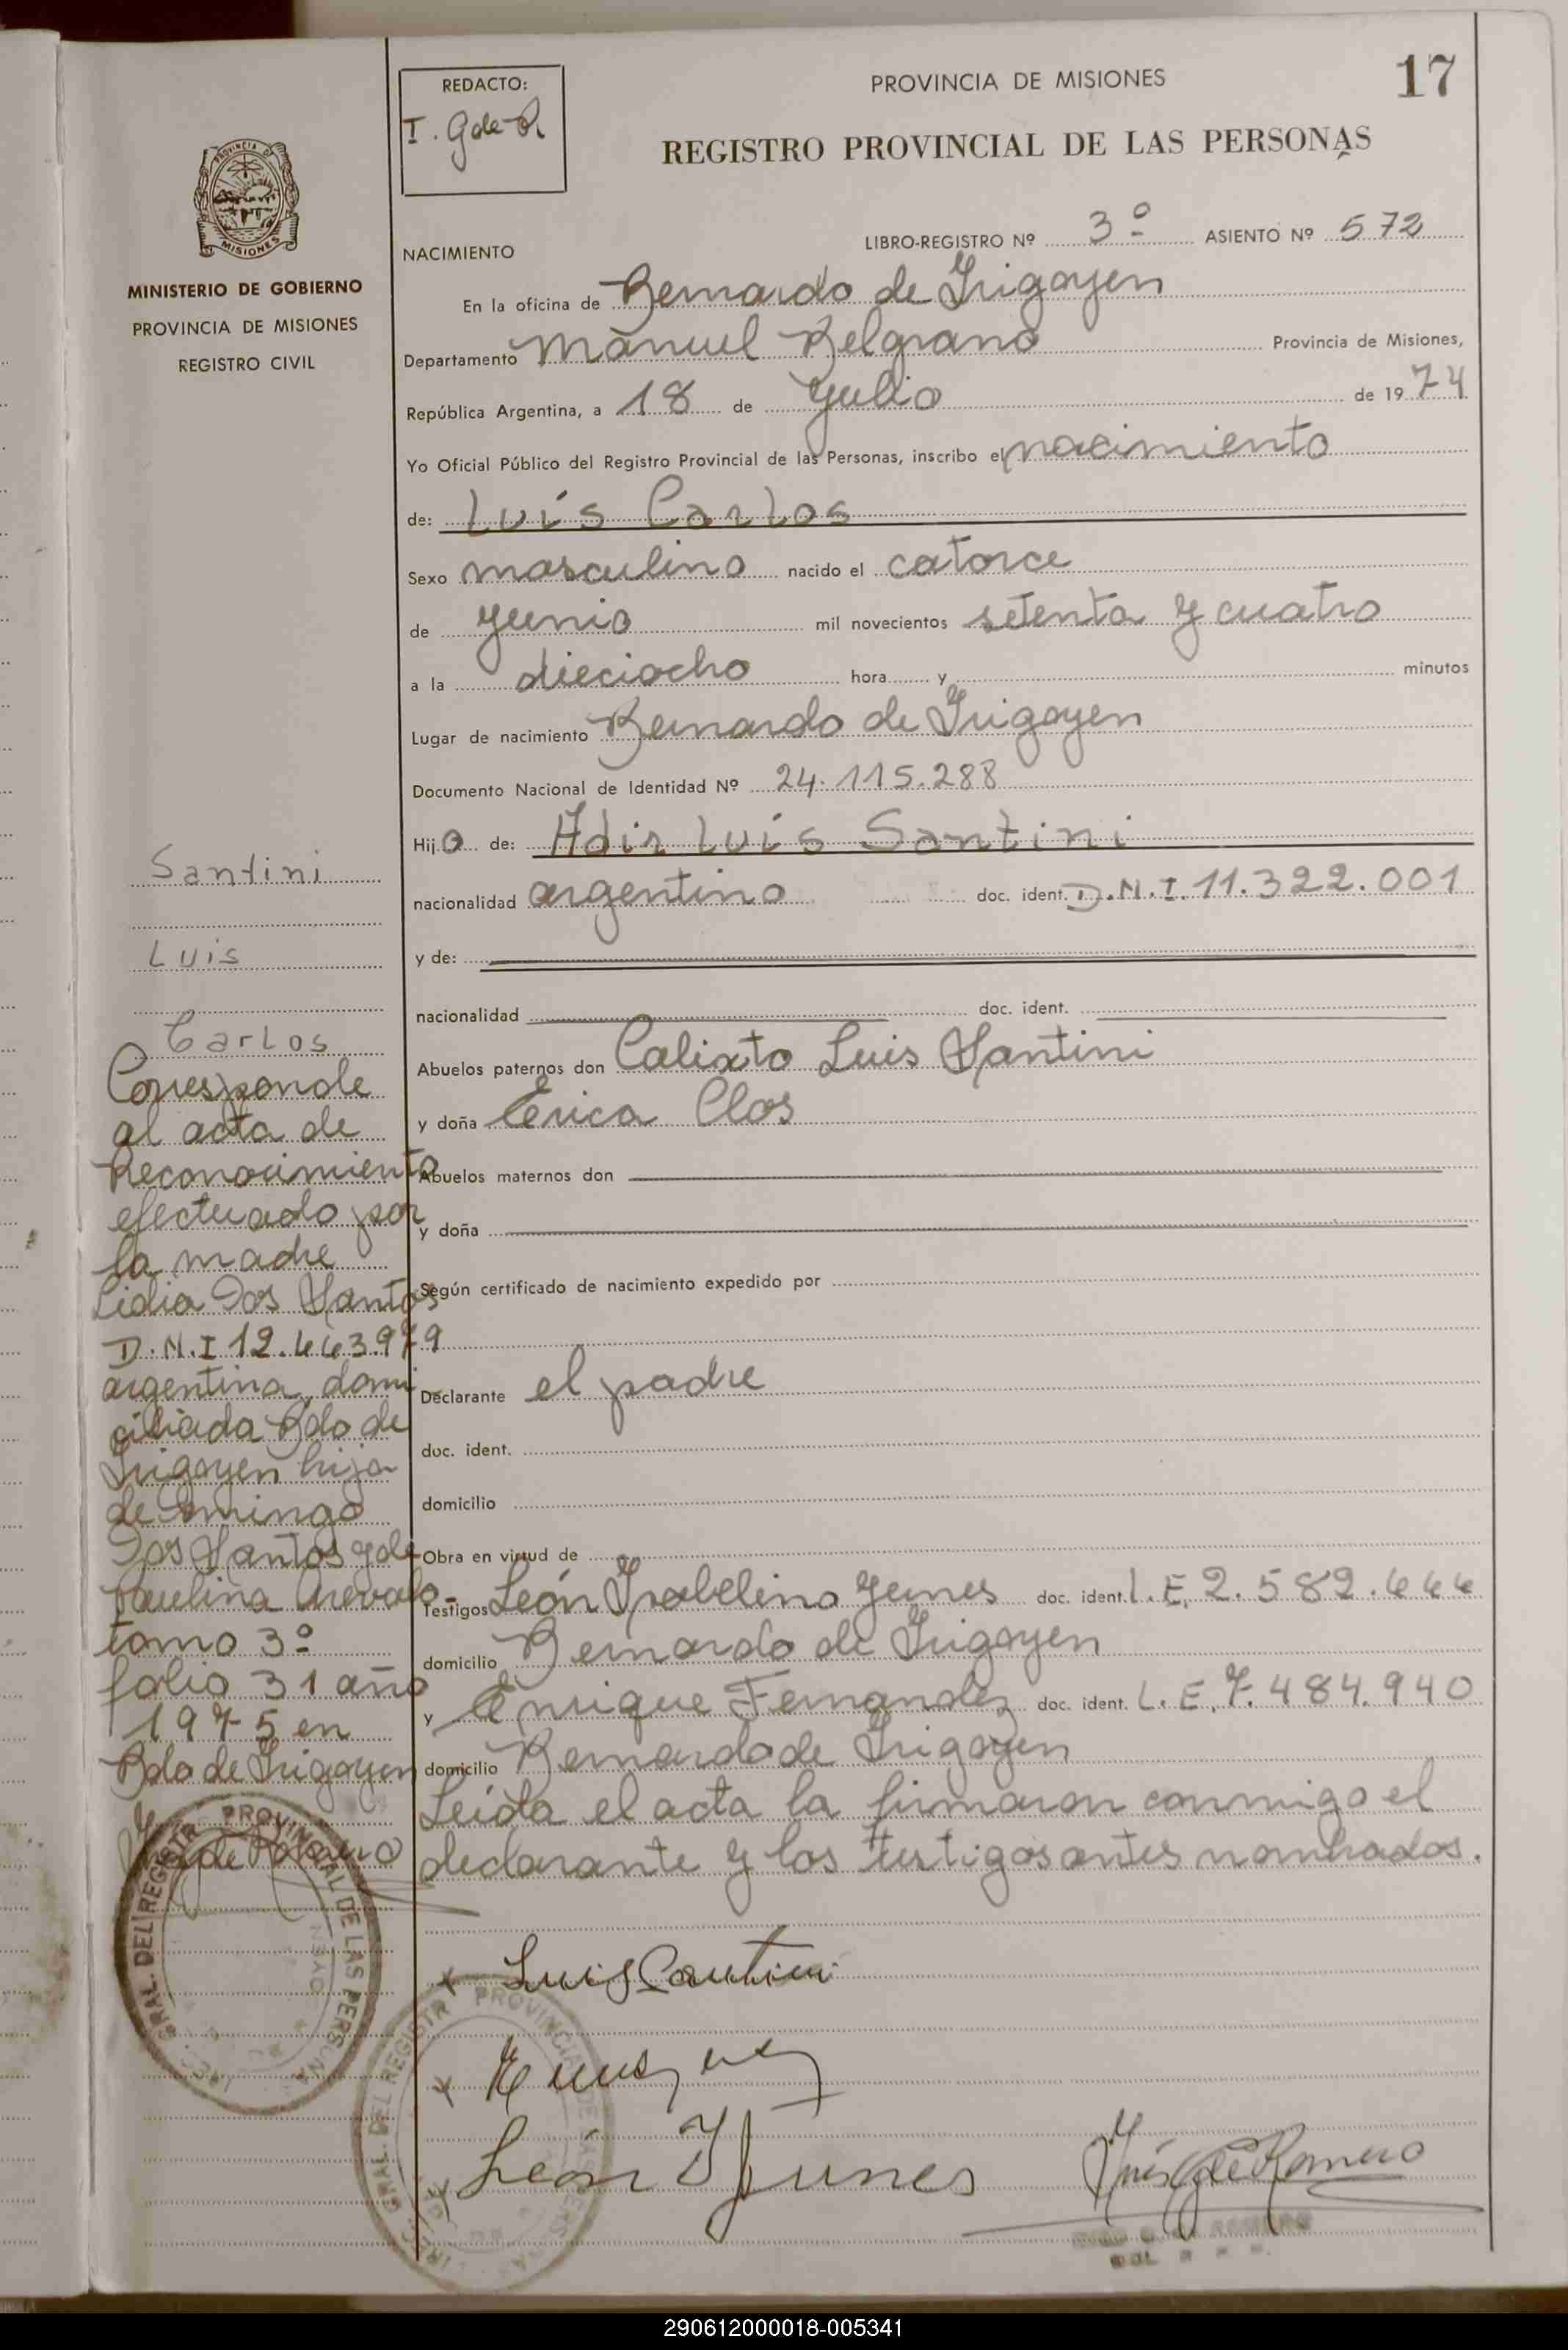 17
REDACTO:
I. G de R.
PROVINCIA DE MISIONES
REGISTRO PROVINCIAL DE LAS PERSONAS
PROVINCIA DE
MISIONES
MINISTERIO DE GOBIERNO
PROVINCIA DE MISIONES
REGISTRO CIVIL
NACIMIENTO
LIBRO-REGISTRO Nº 3º ASIENTO Nº 572
En la oficina de Bernardo de Irigoyen
Departamento Manuel Belgrano Provincia de Misiones,
República Argentina, a 18 de Julio de 1974
Yo Oficial Público del Registro Provincial de las Personas, inscribo el nacimiento
de: Luis Carlos
Sexo masculino nacido el catorce
de junio mil novecientos setenta y cuatro
a la dieciocho hora y minutos
Lugar de nacimiento Bernardo de Irigoyen
Documento Nacional de Identidad Nº 24.115.288
Hijo de: Adir Luis Santini
nacionalidad argentino doc. ident. D.N.I. 11.322.001
y de:
nacionalidad doc. ident.
Abuelos paternos don Calixto Luis Santini
y doña Erica Clos
Abuelos maternos don
y doña
Según certificado de nacimiento expedido por
Declarante el padre
doc. ident.
domicilio
Obra en virtud de
Testigos León Isabelino Yunes doc. ident. L.E. 2.582.444
domicilio Bernardo de Irigoyen
y Enrique Fernandez doc. ident. L.E. 7.484.940
domicilio Bernardo de Irigoyen
Leída el acta la firmaron conmigo el
declarante y los testigos antes nombrados.
Santini
Luis
Carlos
Corresponde
al acta de
Reconocimiento
efectuado por
la madre
Lidia Dos Santos
D.N.I 12.443.979
argentina, domi-
ciliada Bdo de
Irigoyen hija
de Domingo
Dos Santos y de
Paulina Arevalo-
tomo 3º
folio 31 año
1975 en
Bdo de Irigoyen
I G de Romero
GRAL. DEL REGISTR PROVINCIAL DE LAS PERSONA
Luis Santini
León I Yunes
Inés G de Romero
GRAL. DEL REGISTR PROVINCIAL DE LAS PERSONAS
ROMERO
290612000018-005341